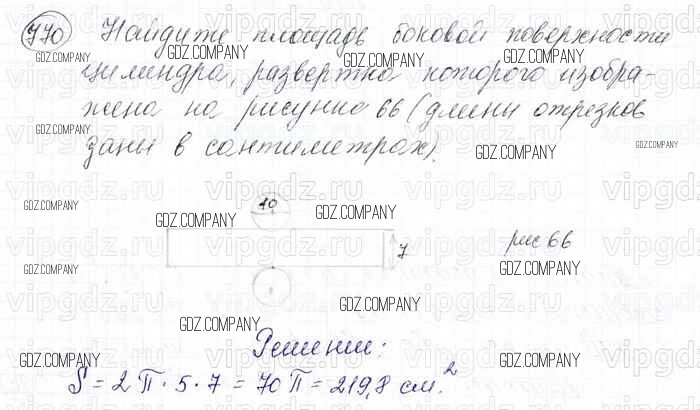 770 Найдите площадь боковой поверхности
цилиндра, развертка которого изобра-
жена на рисунке 66 (длины отрезков
даны в сантиметрах).
10
7
рис 66
Решение:
S = 2 П · 5 · 7 = 70 П = 219,8 см.²
GDZ.COMPANY
vipgdz.ru